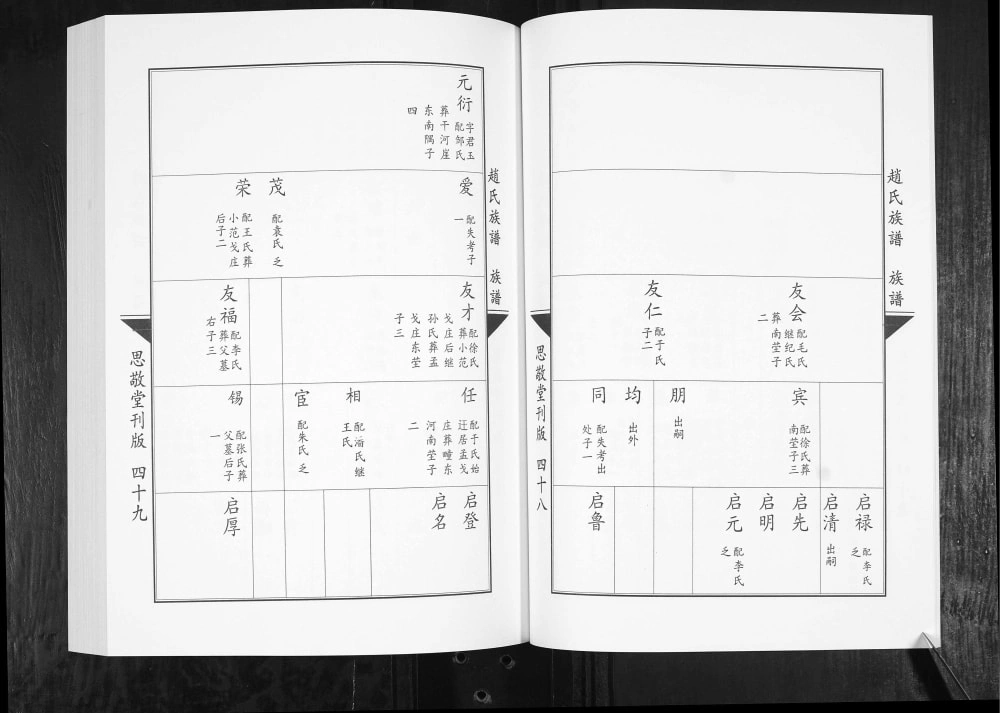 趙氏族譜 族譜
思敬堂刊版 四十八
友会
配毛氏
继纪氏
葬南茔子
二
友仁
配于氏
子二
宾
配徐氏葬
南茔子三
朋
出嗣
均
出外
同
配失考出
处子一
启禄
配李氏
乏
启清
出嗣
启先
启明
启元
配李氏
乏
启鲁
趙氏族譜 族譜
思敬堂刊版 四十九
元衍
字君玉
配邹氏
葬干河崖
东南隅子
四
爱
配失考子
一
茂
配袁氏乏
荣
配王氏葬
小范戈庄
后子二
友才
配徐氏
葬小范
戈庄后继
孙氏葬孟
戈庄东茔
子三
友福
配李氏
葬父墓
右子三
任
配于氏始
迁居孟戈
庄葬疃东
河南茔子
二
相
配潘氏继
王氏
宦
配朱氏乏
锡
配张氏葬
父墓后子
一
启登
启名
启厚